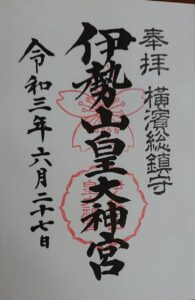 奉拝 横濱総鎮守
伊勢山皇大神宮
令和三年六月二十七日